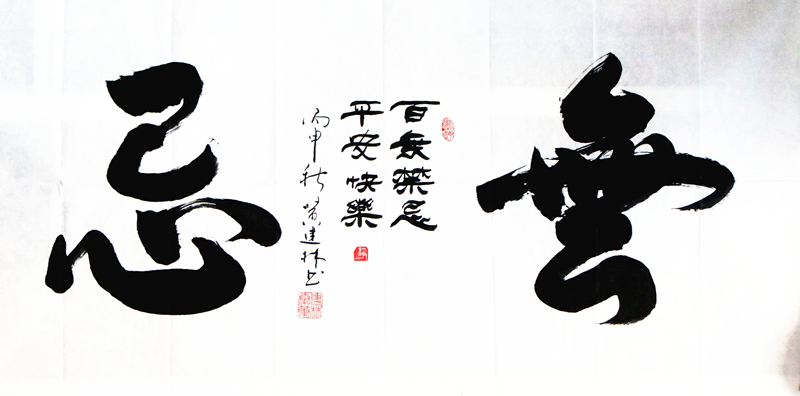 無
百无禁忌
平安快樂
丙申秋黄建林书
忌